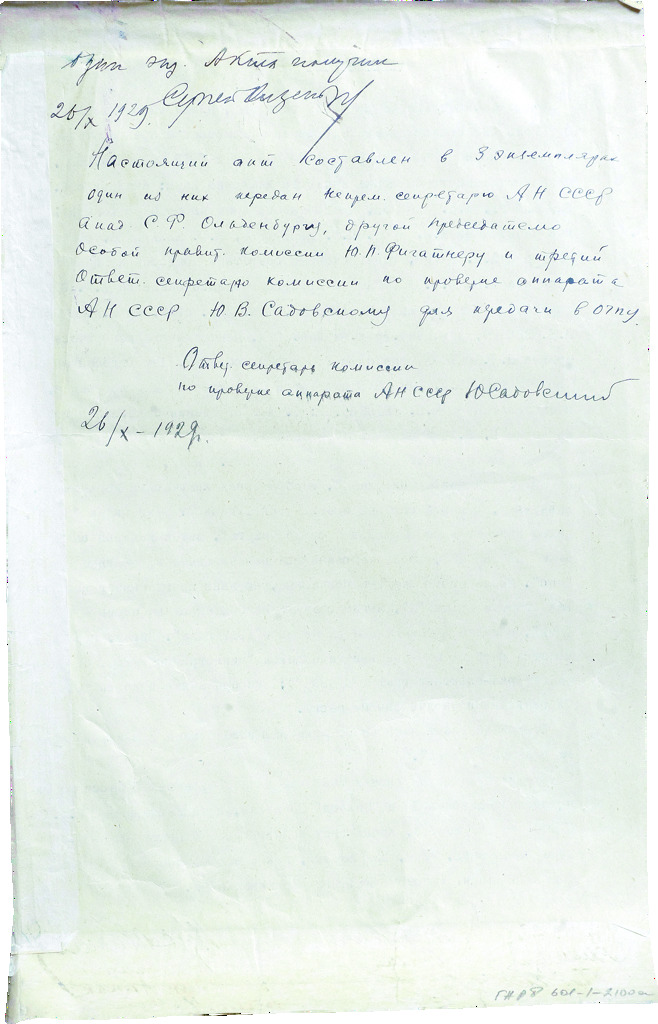 Один экз. Акта получил
26/X 1929.
Настоящий акт составлен в 3 экземплярах
один из них передан Непрем. секретарю АН СССР
Акад. С. Ф. Ольденбургу, другой председателю
особой правит. комиссии Ю. П. Фигатнеру и третий
Ответ. секретарю комиссии по проверке аппарата
АН СССР Ю. В. Садовскому для передачи в ОГПУ.
Ответ. секретарь комиссии
по проверке аппарата АН СССР Ю Садовский
26/X – 1929г.
ГАРФ 601-1-2100а